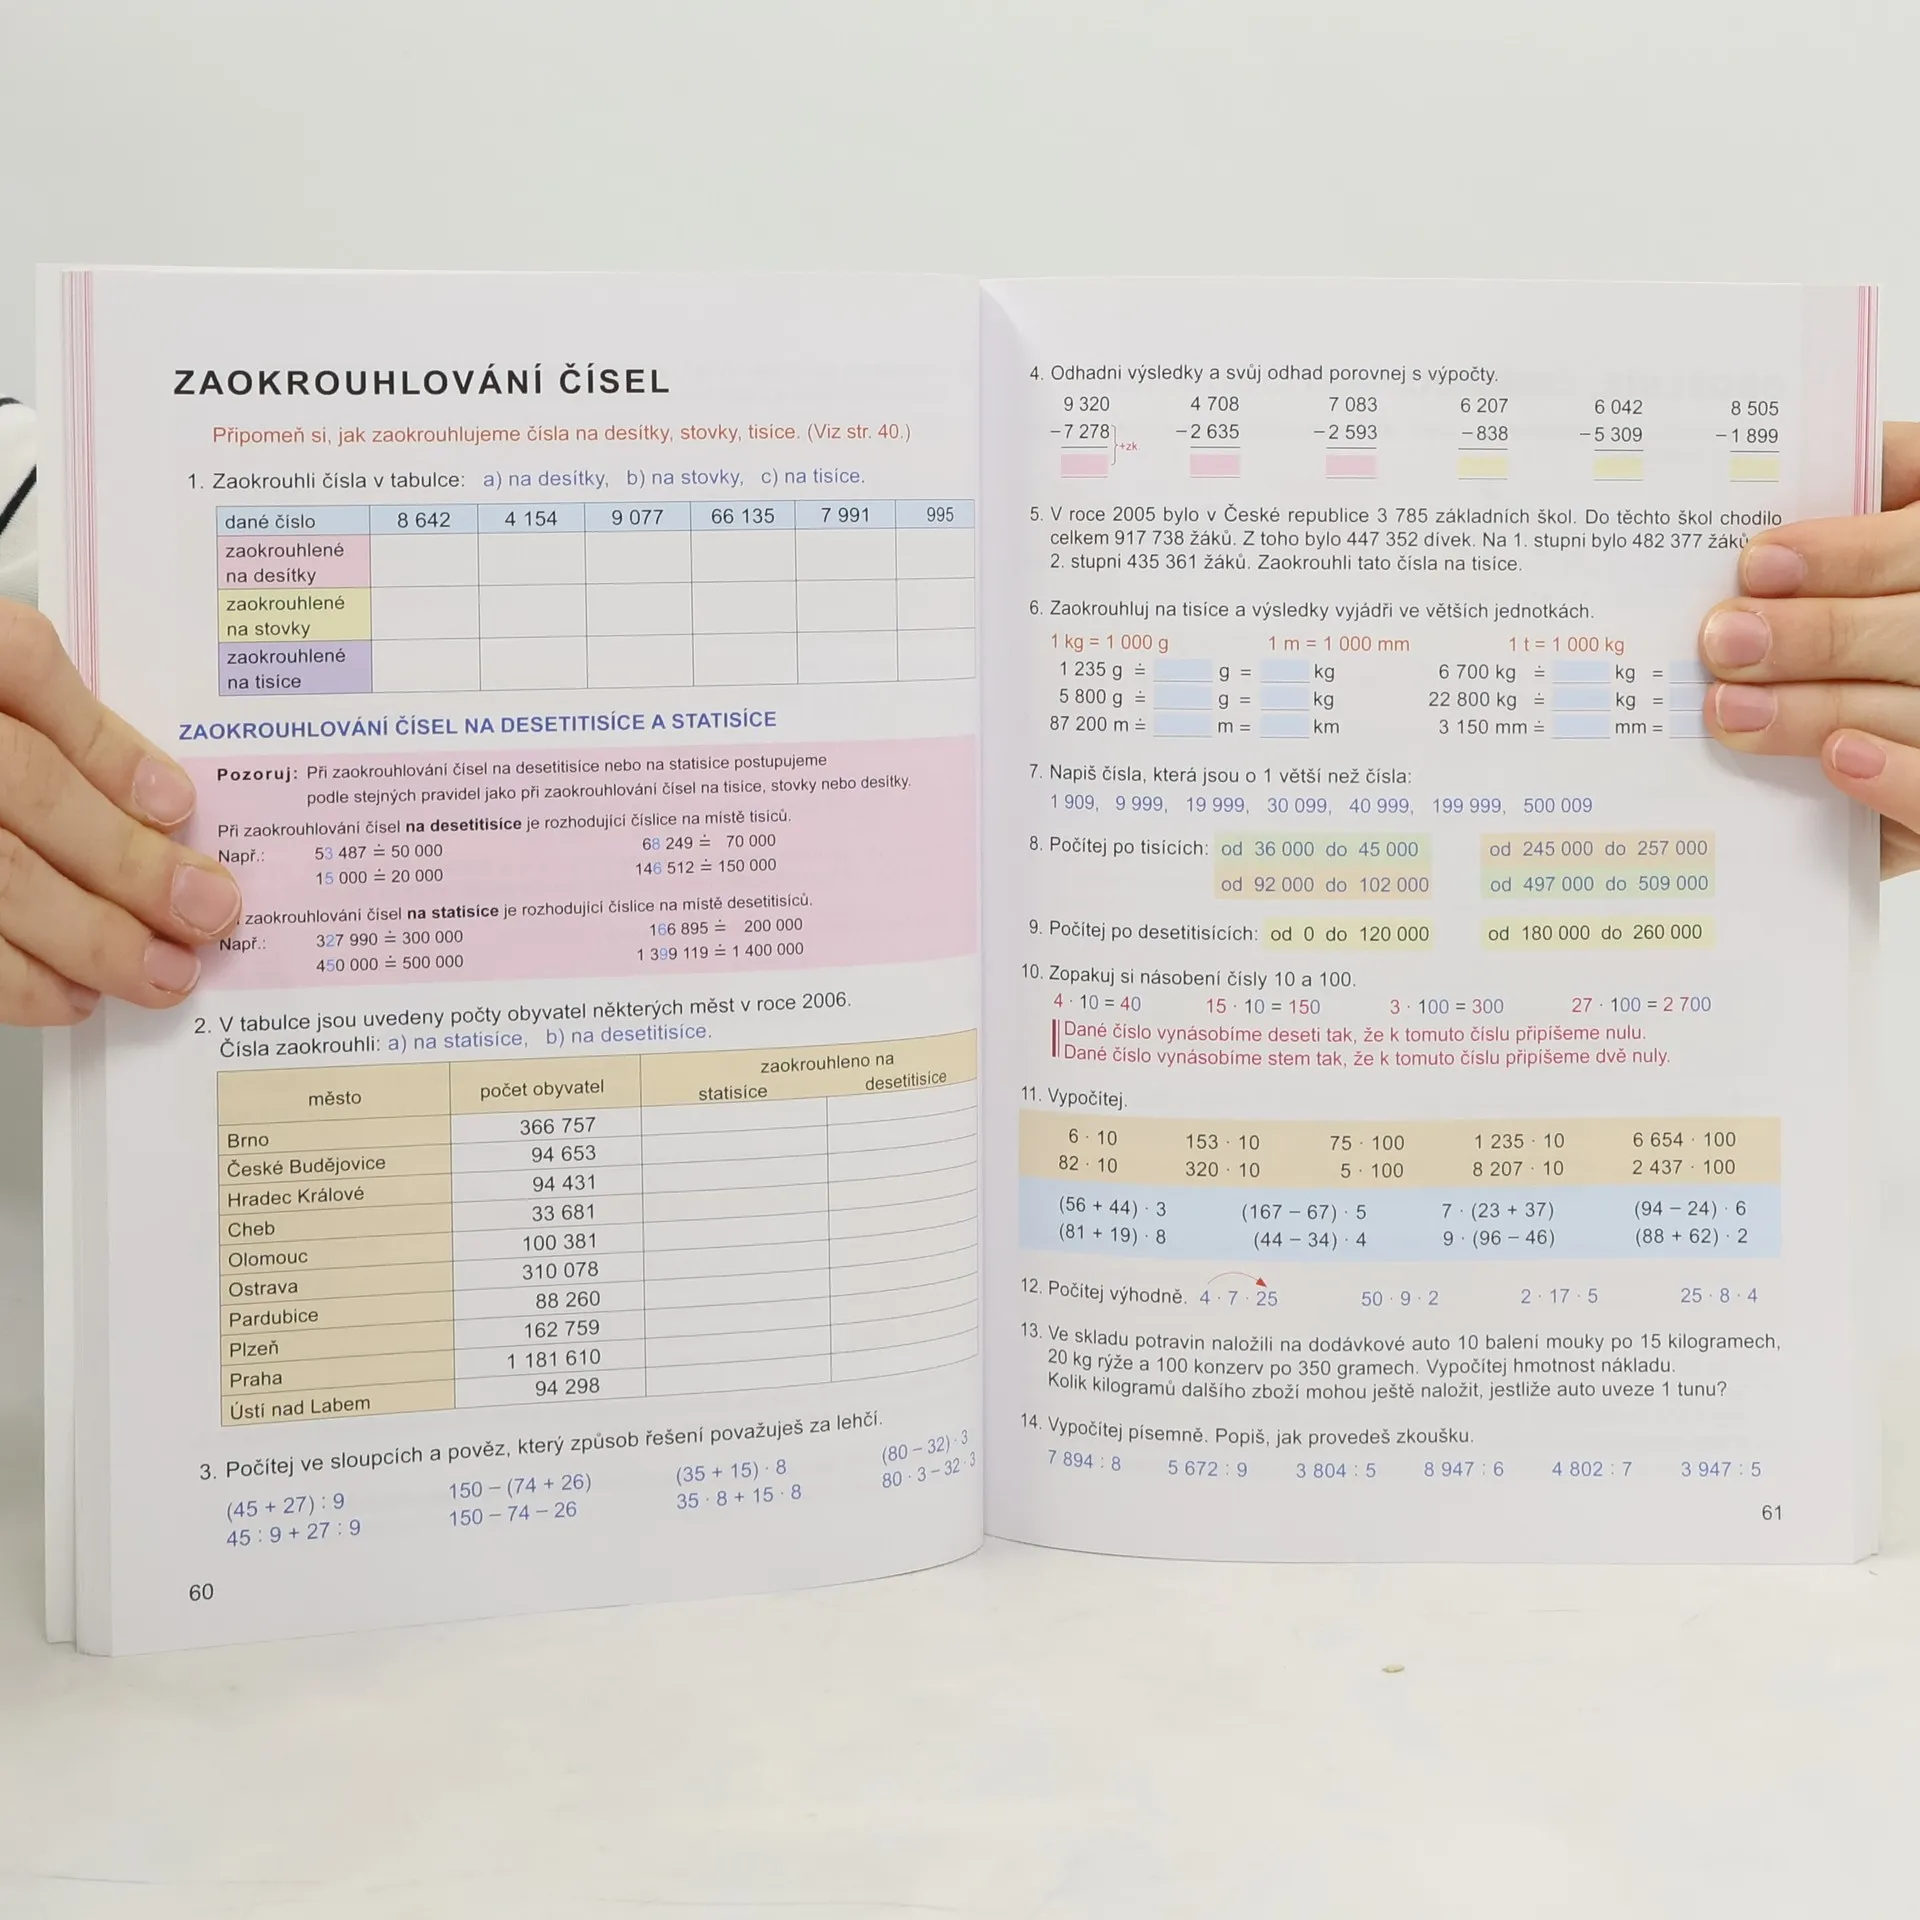 ZAOKROUHLOVÁNÍ ČÍSEL
Připomeň si, jak zaokrouhlujeme čísla na desítky, stovky, tisíce. (Viz str. 40.)
1. Zaokrouhli čísla v tabulce: a) na desítky, b) na stovky, c) na tisíce.
dané číslo 8 642 4 154 9 077 66 135 7 991 995
zaokrouhlené
na desítky
zaokrouhlené
na stovky
zaokrouhlené
na tisíce
ZAOKROUHLOVÁNÍ ČÍSEL NA DESETITISÍCE A STATISÍCE
Pozoruj: Při zaokrouhlování čísel na desetitisíce nebo na statisíce postupujeme
podle stejných pravidel jako při zaokrouhlování čísel na tisíce, stovky nebo desítky.
Při zaokrouhlování čísel na desetitisíce je rozhodující číslice na místě tisíců.
Např.: 53 487 ≐ 50 000 68 249 ≐ 70 000
15 000 ≐ 20 000 146 512 ≐ 150 000
zaokrouhlování čísel na statisíce je rozhodující číslice na místě desetitisíců.
Např.: 327 990 ≐ 300 000 166 895 ≐ 200 000
450 000 ≐ 500 000 1 399 119 ≐ 1 400 000
2. V tabulce jsou uvedeny počty obyvatel některých měst v roce 2006.
Čísla zaokrouhli: a) na statisíce, b) na desetitisíce.
město počet obyvatel zaokrouhleno na
statisíce desetitisíce
Brno 366 757
České Budějovice 94 653
Hradec Králové 94 431
Cheb 33 681
Olomouc 100 381
Ostrava 310 078
Pardubice 88 260
Plzeň 162 759
Praha 1 181 610
Ústí nad Labem 94 298
3. Počítej ve sloupcích a pověz, který způsob řešení považuješ za lehčí.
(45 + 27) : 9 150 – (74 + 26) (35 + 15) · 8 (80 – 32) · 3
45 : 9 + 27 : 9 150 – 74 – 26 35 · 8 + 15 · 8 80 · 3 – 32 · 3
60
4. Odhadni výsledky a svůj odhad porovnej s výpočty.
9 320 4 708 7 083 6 207 6 042 8 505
–7 278 –2 635 –2 593 –838 –5 309 –1 899
+zk.
5. V roce 2005 bylo v České republice 3 785 základních škol. Do těchto škol chodilo
celkem 917 738 žáků. Z toho bylo 447 352 dívek. Na 1. stupni bylo 482 377 žáků
2. stupni 435 361 žáků. Zaokrouhli tato čísla na tisíce.
6. Zaokrouhluj na tisíce a výsledky vyjádři ve větších jednotkách.
1 kg = 1 000 g 1 m = 1 000 mm 1 t = 1 000 kg
1 235 g ≐ g = kg 6 700 kg ≐ kg =
5 800 g ≐ g = kg 22 800 kg ≐ kg =
87 200 m ≐ m = km 3 150 mm ≐ mm =
7. Napiš čísla, která jsou o 1 větší než čísla:
1 909, 9 999, 19 999, 30 099, 40 999, 199 999, 500 009
8. Počítej po tisících: od 36 000 do 45 000 od 245 000 do 257 000
od 92 000 do 102 000 od 497 000 do 509 000
9. Počítej po desetitisících: od 0 do 120 000 od 180 000 do 260 000
10. Zopakuj si násobení čísly 10 a 100.
4 · 10 = 40 15 · 10 = 150 3 · 100 = 300 27 · 100 = 2 700
Dané číslo vynásobíme deseti tak, že k tomuto číslu připíšeme nulu.
Dané číslo vynásobíme stem tak, že k tomuto číslu připíšeme dvě nuly.
11. Vypočítej.
6 · 10 153 · 10 75 · 100 1 235 · 10 6 654 · 100
82 · 10 320 · 10 5 · 100 8 207 · 10 2 437 · 100
(56 + 44) · 3 (167 – 67) · 5 7 · (23 + 37) (94 – 24) · 6
(81 + 19) · 8 (44 – 34) · 4 9 · (96 – 46) (88 + 62) · 2
12. Počítej výhodně. 4 · 7 · 25 50 · 9 · 2 2 · 17 · 5 25 · 8 · 4
13. Ve skladu potravin naložili na dodávkové auto 10 balení mouky po 15 kilogramech,
20 kg rýže a 100 konzerv po 350 gramech. Vypočítej hmotnost nákladu.
Kolik kilogramů dalšího zboží mohou ještě naložit, jestliže auto uveze 1 tunu?
14. Vypočítej písemně. Popiš, jak provedeš zkoušku.
7 894 : 8 5 672 : 9 3 804 : 5 8 947 : 6 4 802 : 7 3 947 : 5
61